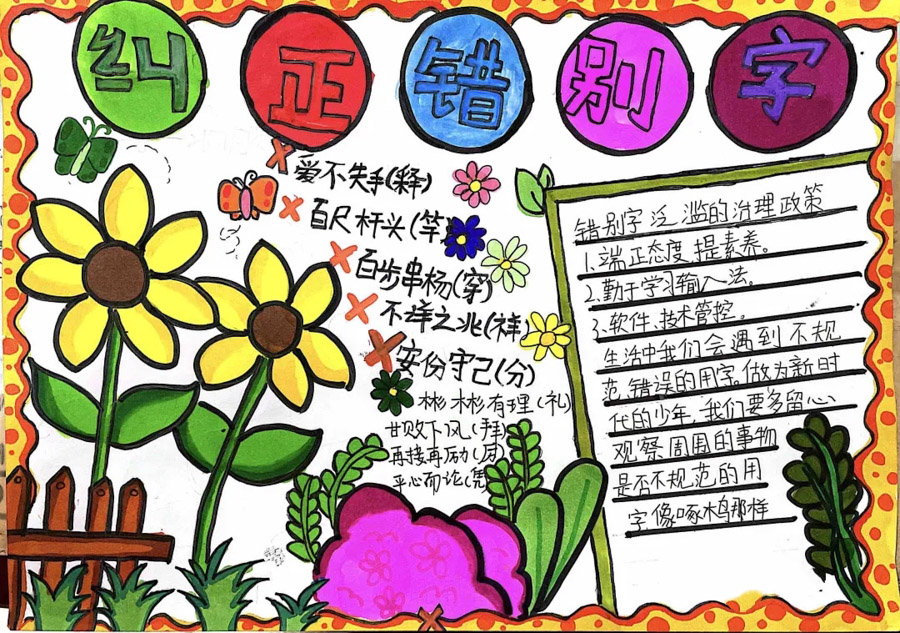 纠正错别字
爱不失手(释)
百尺杆头(竿)
百步串杨(穿)
不洋之兆(祥)
安份守己(分)
彬彬有理(礼)
甘败下风(拜)
再接再历(厉)
平心而论(凭)
错别字泛滥的治理政策
1.端正态度提素养。
2.勤于学习输入法。
3.软件、技术管控。
生活中我们会遇到不规
范、错误的用字。做为新时
代的少年,我们要多留心
观察周围的事物
是否不规范的用
字像啄木鸟那样